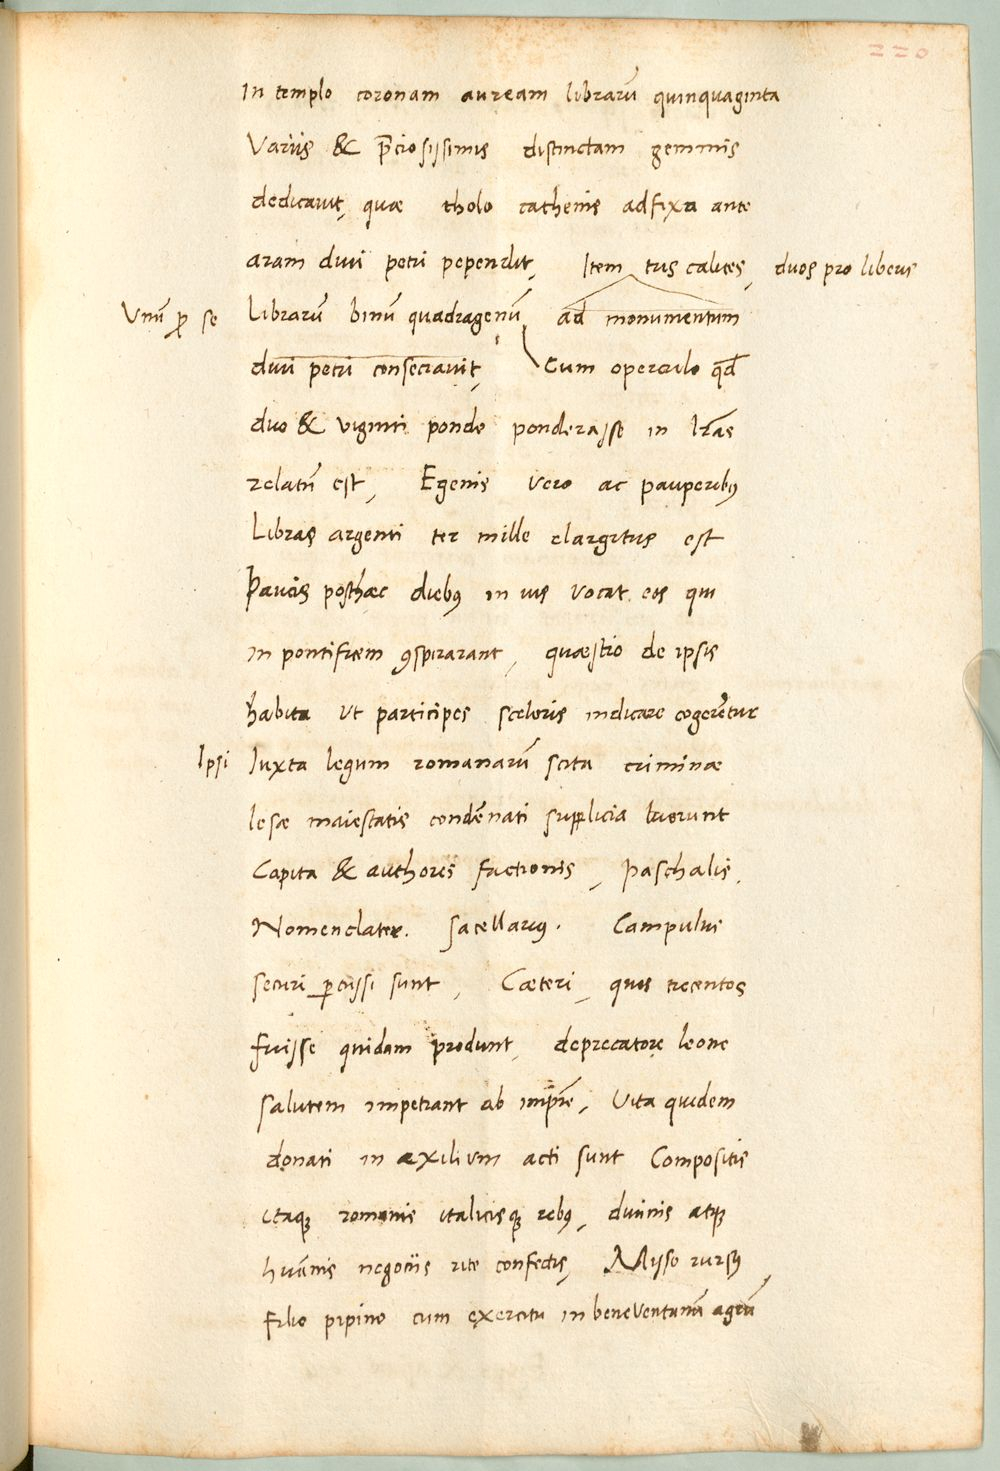 220
In templo coronam auream librarū quinquaginta
Variis & p̄ciosissimis distinctam gemmis
dedicavit, quæ tholo cathenis adfixa ante
aram divi petri pependit, Item tris calices, duos pro liberis
Unū ꝓ se Librarū binū quadragenū, ad monumentum
divi petri consecravit, Cum operculo qđ
duo & viginti pondo ponderasse in lr̄as
relatū est, Egenis vero ac pauperibꝰ
Libras argenti ter mille elargitus est
Paucis posthæc diebꝰ in ius vocat eos qui
in pontificem ꝯspirarant, quæstio de ipsis
habita ut participes sceleris indicare cogerētur
Ipsi Iuxta legum romanarū scita criminæ
lesæ maiestatis condēnati supplicia luerunt
Capita & authores factionis, Paschalis,
Nomenclater. sacellariꝰ. Campulus
securi ꝑcussi sunt, Cæteri, quos trecentos
fuisse quidam produnt, deprecatore leone
salutem impetrant ab imp̄re, Vita quidem
donati in exilium acti sunt Compositis
itaqꝫ romanis italicisqꝫ rebꝰ, divinis atqꝫ
huānis negociis rite confectis, Misso rursꝰ
filio pipino cum exercitu in beneventanū agrū